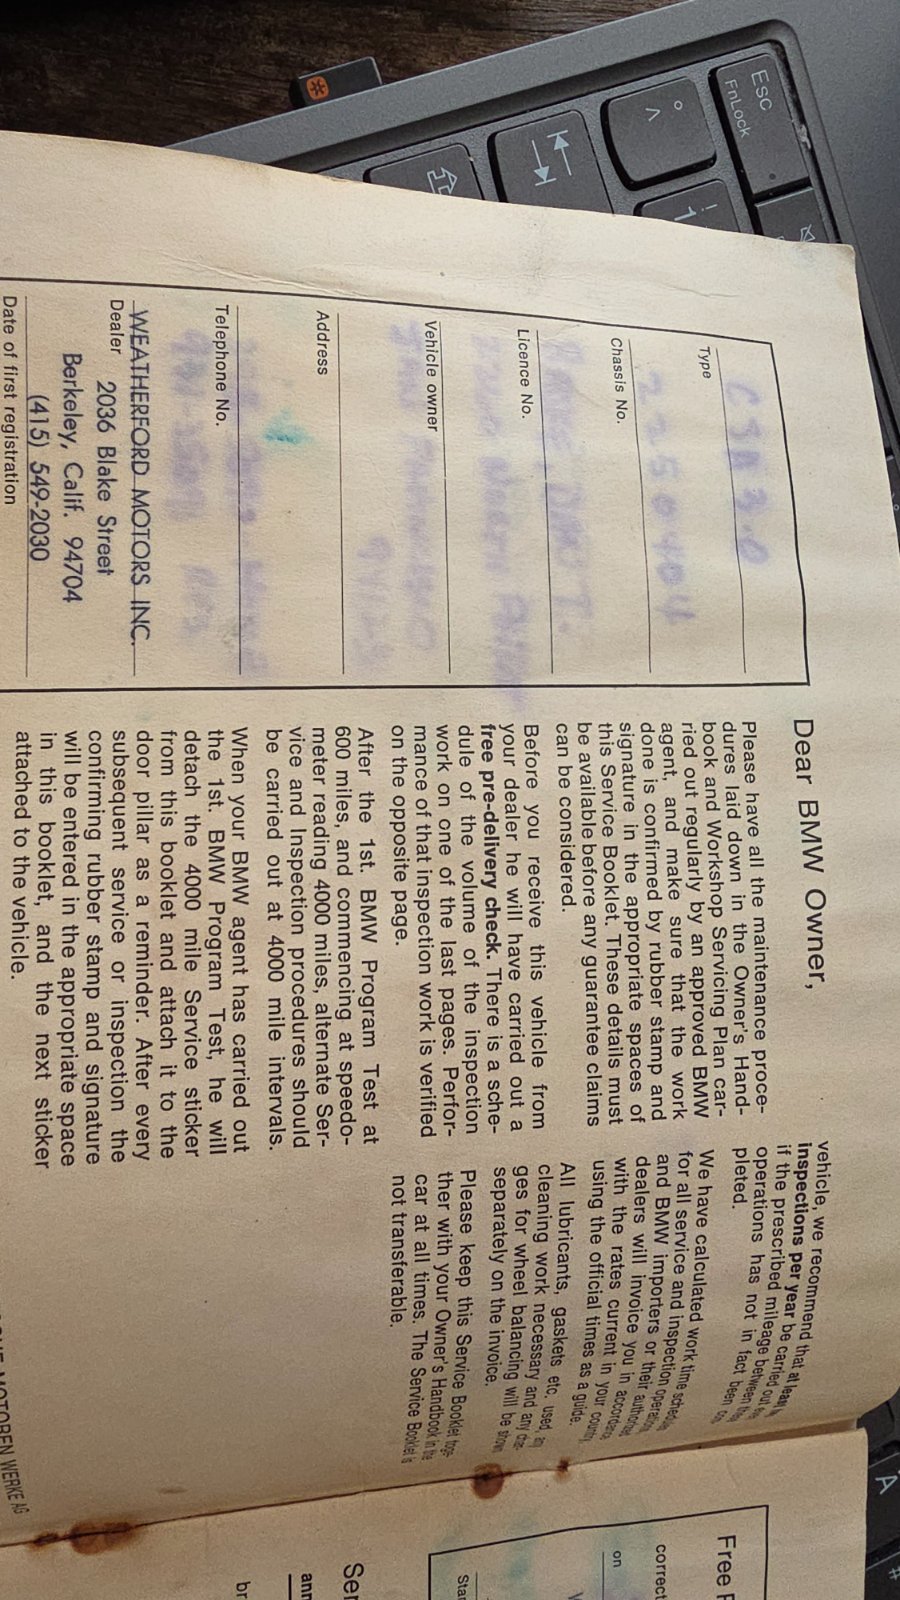 ESC
FnLock
CSA 3.0
Type
2250404
Chassis No.
Licence No.
Vehicle owner
Address
Telephone No.
WEATHERFORD MOTORS INC.
Dealer 2036 Blake Street
Berkeley, Calif. 94704
(415) 549-2030
Date of first registration
Dear BMW Owner,
Please have all the maintenance proce-
dures laid down in the Owner's Hand-
book and Workshop Servicing Plan car-
ried out regularly by an approved BMW
agent, and make sure that the work
done is confirmed by rubber stamp and
signature in the appropriate spaces of
this Service Booklet. These details must
be available before any guarantee claims
can be considered.
Before you receive this vehicle from
your dealer he will have carried out a
free pre-delivery check. There is a sche-
dule of the volume of the inspection
work on one of the last pages. Perfor-
mance of that inspection work is verified
on the opposite page.
After the 1st. BMW Program Test at
600 miles, and commencing at speedo-
meter reading 4000 miles, alternate Ser-
vice and Inspection procedures should
be carried out at 4000 mile intervals.
When your BMW agent has carried out
the 1st. BMW Program Test, he will
detach the 4000 mile Service sticker
from this booklet and attach it to the
door pillar as a reminder. After every
subsequent service or inspection the
confirming rubber stamp and signature
will be entered in the appropriate space
in this booklet, and the next sticker
attached to the vehicle.
vehicle, we recommend that at least
inspections per year be carried out
if the prescribed mileage between
operations has not in fact been com-
pleted.
We have calculated work time
for all service and inspection operations
and BMW importers or their authorized
dealers will invoice you in accordance
with the rates current in your country,
using the official times as a guide.
All lubricants, gaskets etc. used, any
cleaning work necessary and any char-
ges for wheel balancing will be shown
separately on the invoice.
Please keep this Service Booklet toge-
ther with your Owner's Handbook in the
car at all times. The Service Booklet is
not transferable.
MOTOREN WERKE AG
Free
correct
on
Ser
br